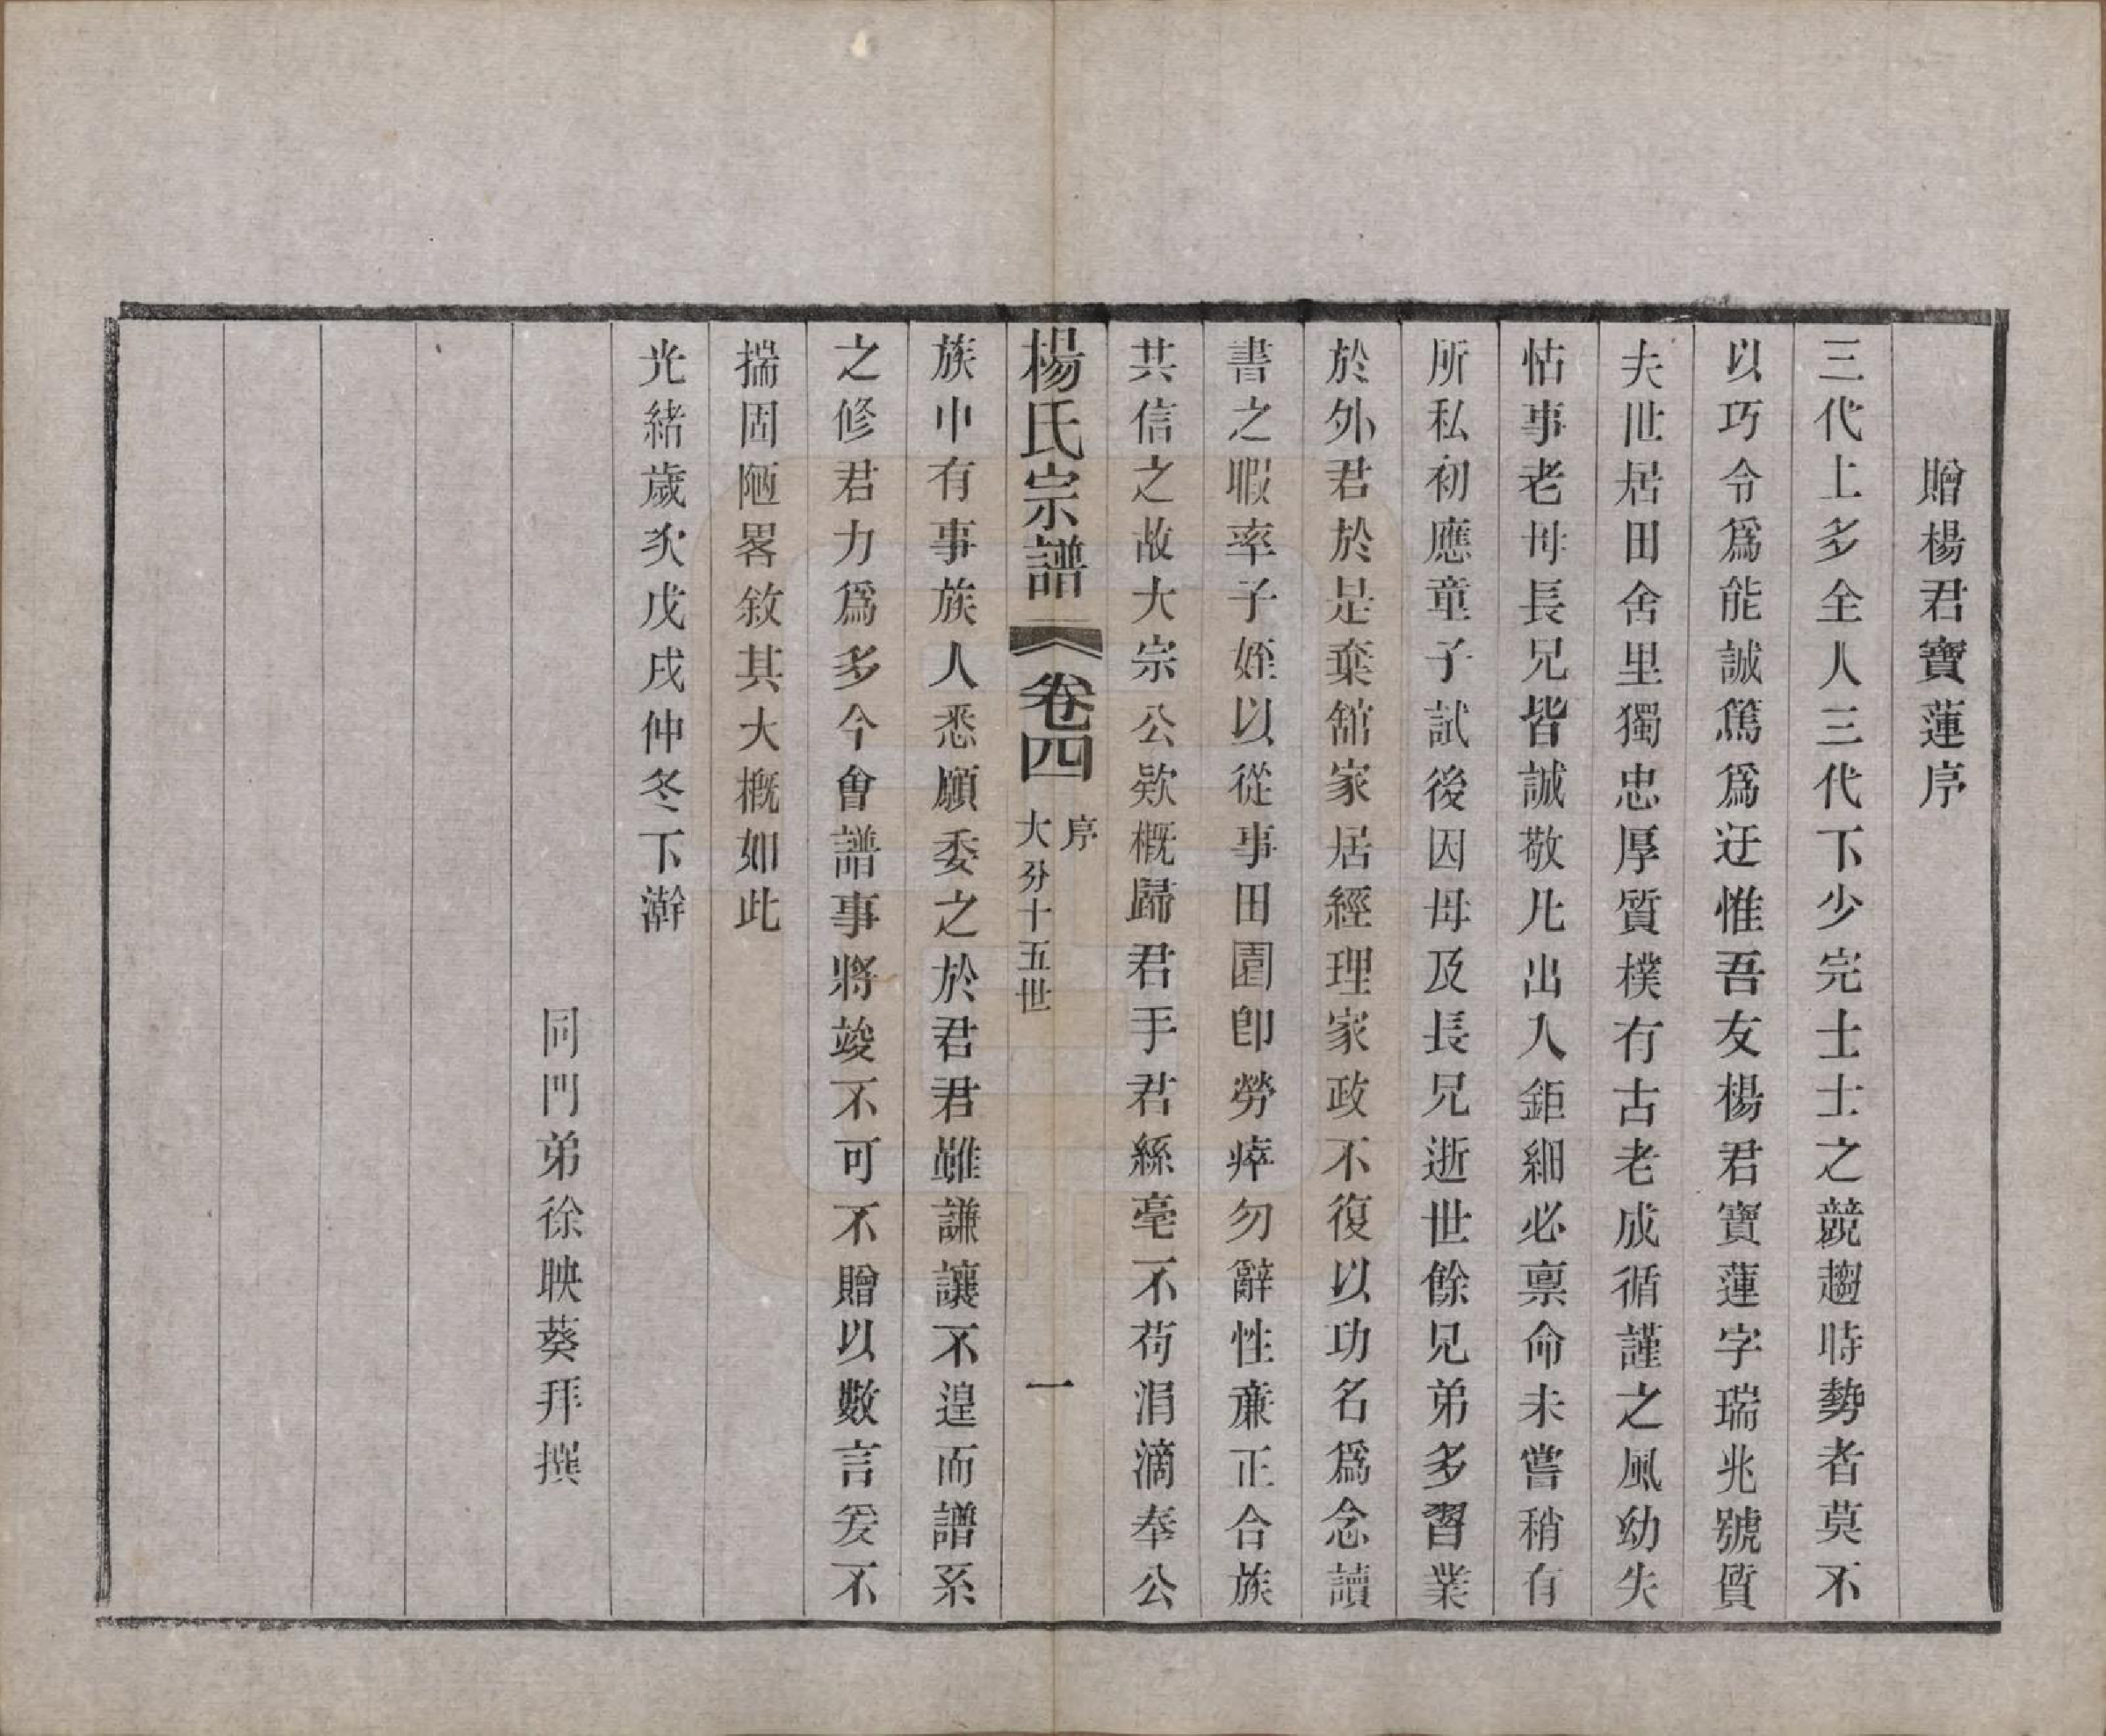 贈楊君寶蓮序
三代上多全人三代下少完士士之競趨時勢者莫不
以巧令爲能誠篤爲迂惟吾友楊君寶蓮字瑞兆號質
夫世居田舍里獨忠厚質樸有古老成循謹之風幼失
怙事老母長兄皆誠敬凡出入鉅細必禀命未嘗稍有
所私初應童子試後因母及長兄逝世餘兄弟多習業
於外君於是棄舘家居經理家政不復以功名爲念讀
書之暇率子姪以從事田園卽勞瘁勿辭性亷正合族
共信之故大宗公欵概歸君手君絲毫不苟涓滴奉公
楊氏宗譜 卷四 序 大分十五世 一
族中有事族人悉願委之於君君雖謙讓不遑而譜系
之修君力爲多今會譜事將竣不可不贈以數言爰不
揣固陋畧敘其大概如此
光緒歲次戊戌仲冬下澣
同門弟徐映葵拜撰